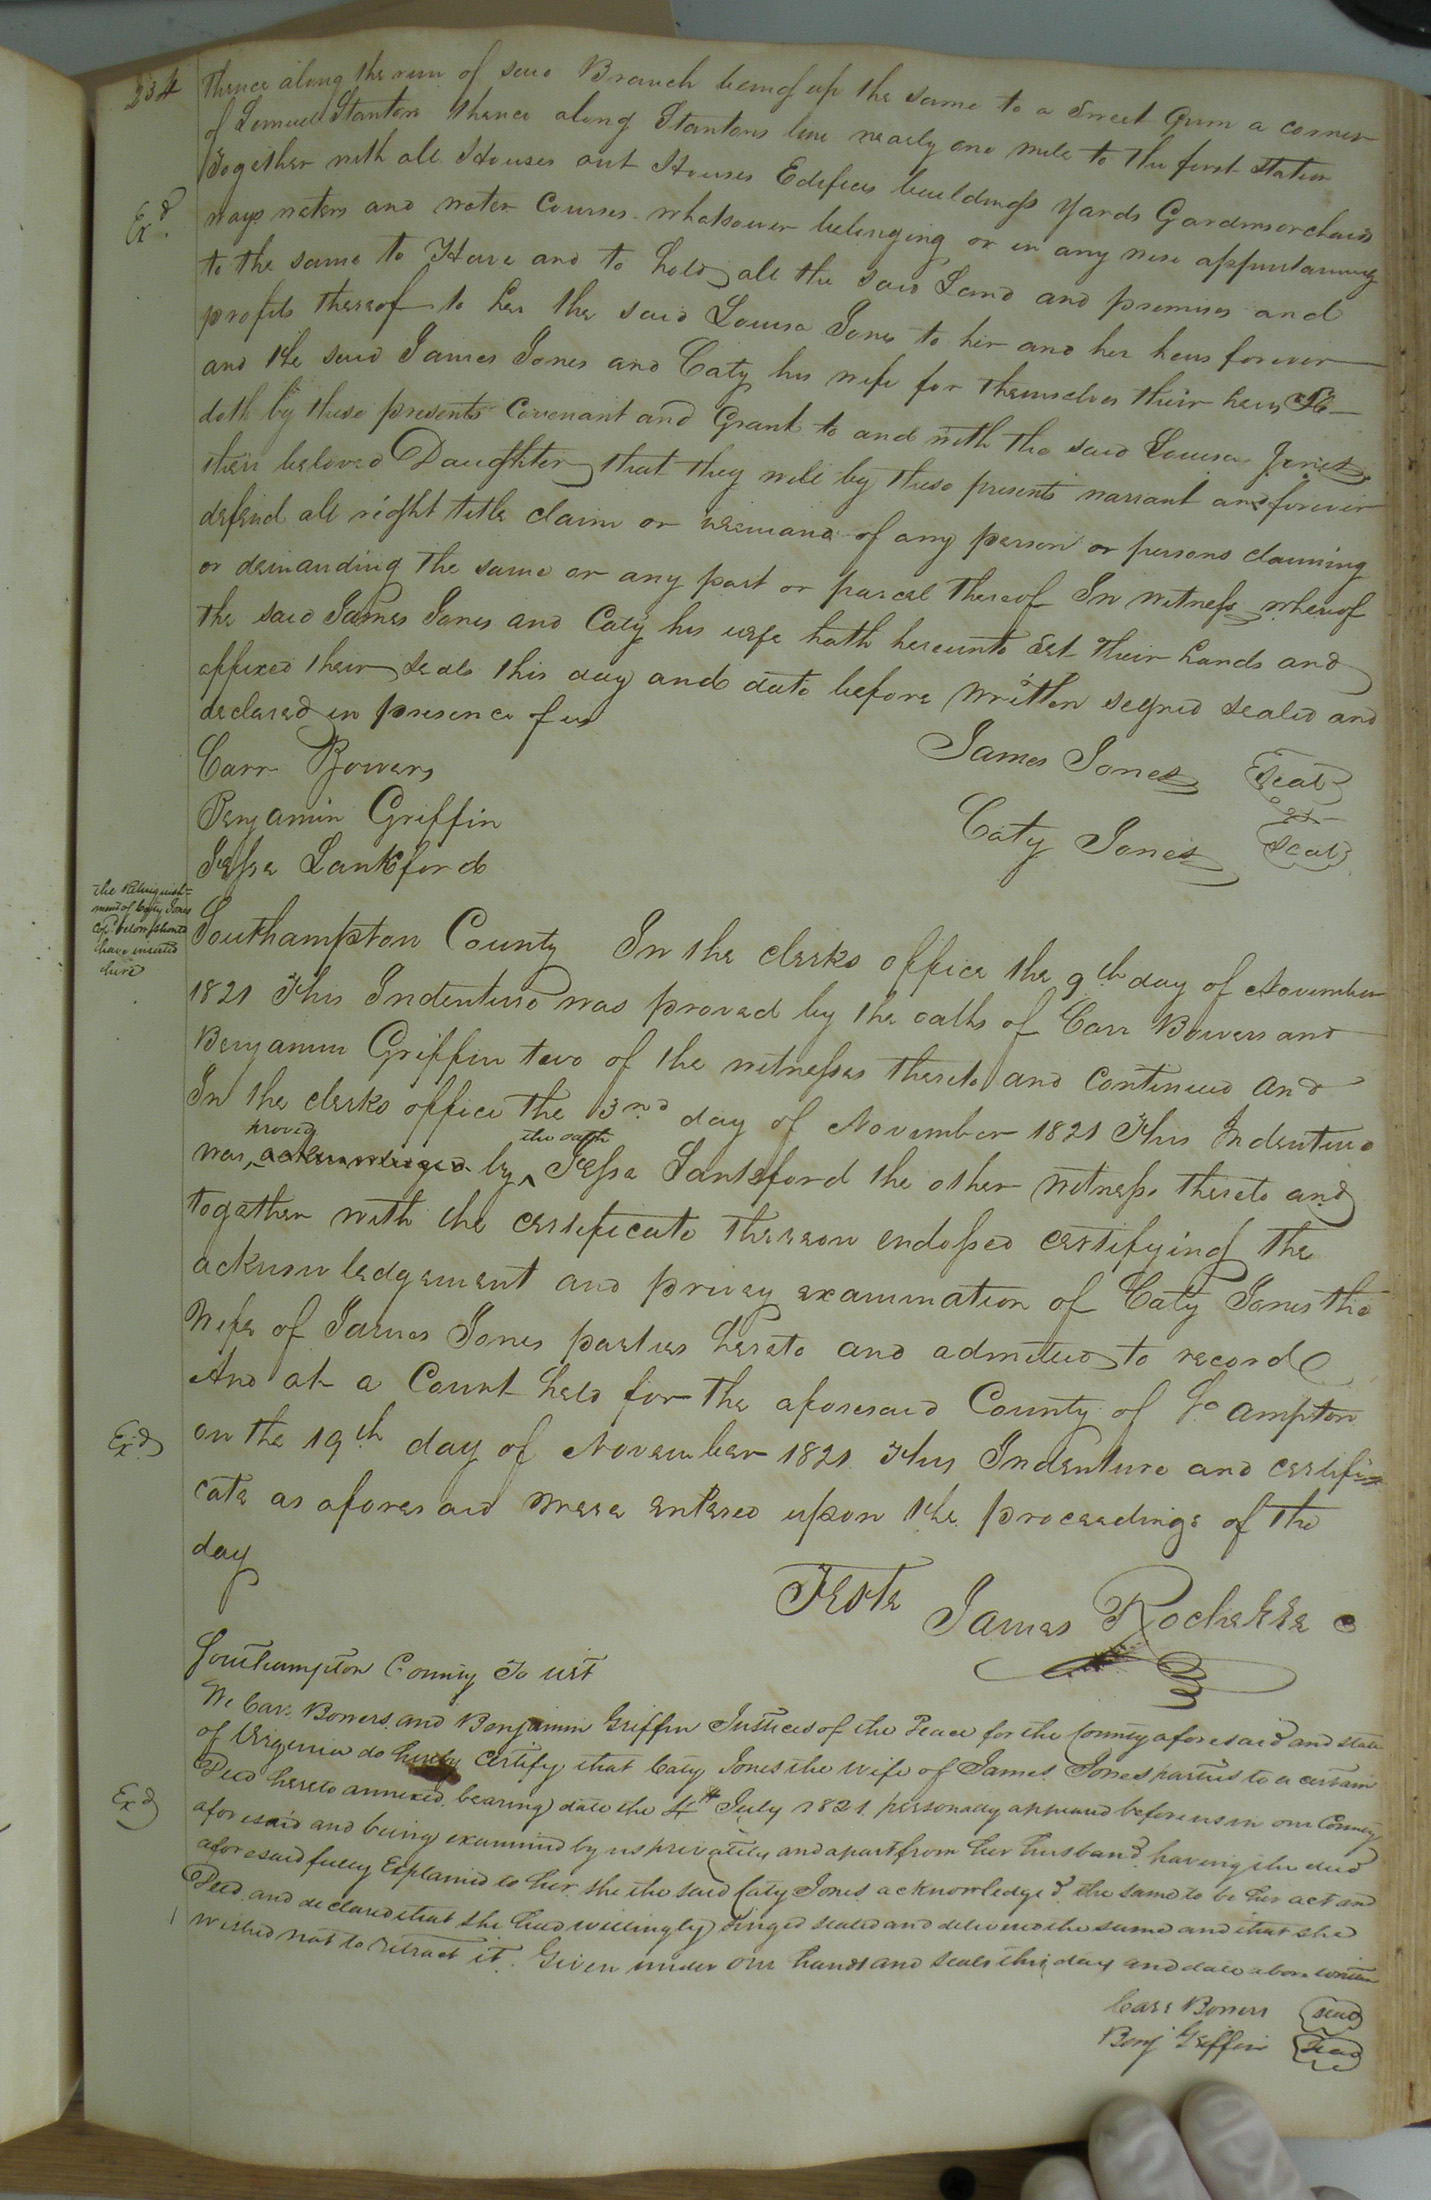 234
thence along the run of said Branch being up the same to a Sweet Gum a corner
of Lemuel Stantons thence along Stantons line nearly one mile to the first Station
Together with all Houses out Houses Edifices buildings Yards Gardens orchards
Exd.
ways waters and water Courses whatsoever belonging or in any wise appurtaining
to the same to Have and to hold all the said Land and premises and
profits thereof to her the said Louisa Jones to her and her heirs forever
and the said James Jones and Caty his wife for themselves their heirs &c
doth by these presents Covenant and Grant to and with the said Louisa Jones
their beloved Daughter that they will by these presents warrant and forever
defend all right title claim or demand of any person or persons claiming
or demanding the same or any part or parcel thereof In witness whereof
the said James Jones and Caty his wife hath hereunto Set their hands and
affixed their seals this day and date before written signed sealed and
declared in presence of us
Carr Bowers
Benjamin Griffin
Jesse Lankford
James Jones Seal
Caty Jones Seal
the Relinquish=
ment of Caty Jones
below should
have inserted
here
Southampton County In the clerks office the 9th day of November
1821 This Indenture was proved by the oaths of Carr Bowers and
Benjamin Griffin two of the witnesses thereto and continued and
In the clerks office the 3nd day of November 1821 This Indenture
proved the oath
was acknowledged by Jesse Lankford the other witness thereto and
together with the certificate thereon endossed certifying the
acknowledgement and privey examination of Caty Jones the
Wife of James Jones parties hereto and admitted to record
And at a Court held for the aforesaid County of So ampton
Exd
on the 19th day of November 1821 This Indenture and certifi=
cate as aforesaid were entered upon the proceedings of the
day
Teste James Rochelle c
Southampton County To wit
We Carr Bowers and Benjamin Griffin Justices of the Peace for the County aforesaid and state
of Virginia do hereby certify that Caty Jones the wife of James Jones parties to a certain
Deed hereto annexed bearing date the 4th July 1821 personally appeared before us in our County
Exd
aforesaid and being examined by us privately and apart from her husband having the deed
aforesaid fully Explained to her she the said Caty Jones acknowledged the same to be her act and
Deed and declared that she had willingly singed sealed and delivered the same and that she
wished not to retract it. Given under our hands and seals this day and date above written
Carr Bowers seal
Benj Griffin Seal